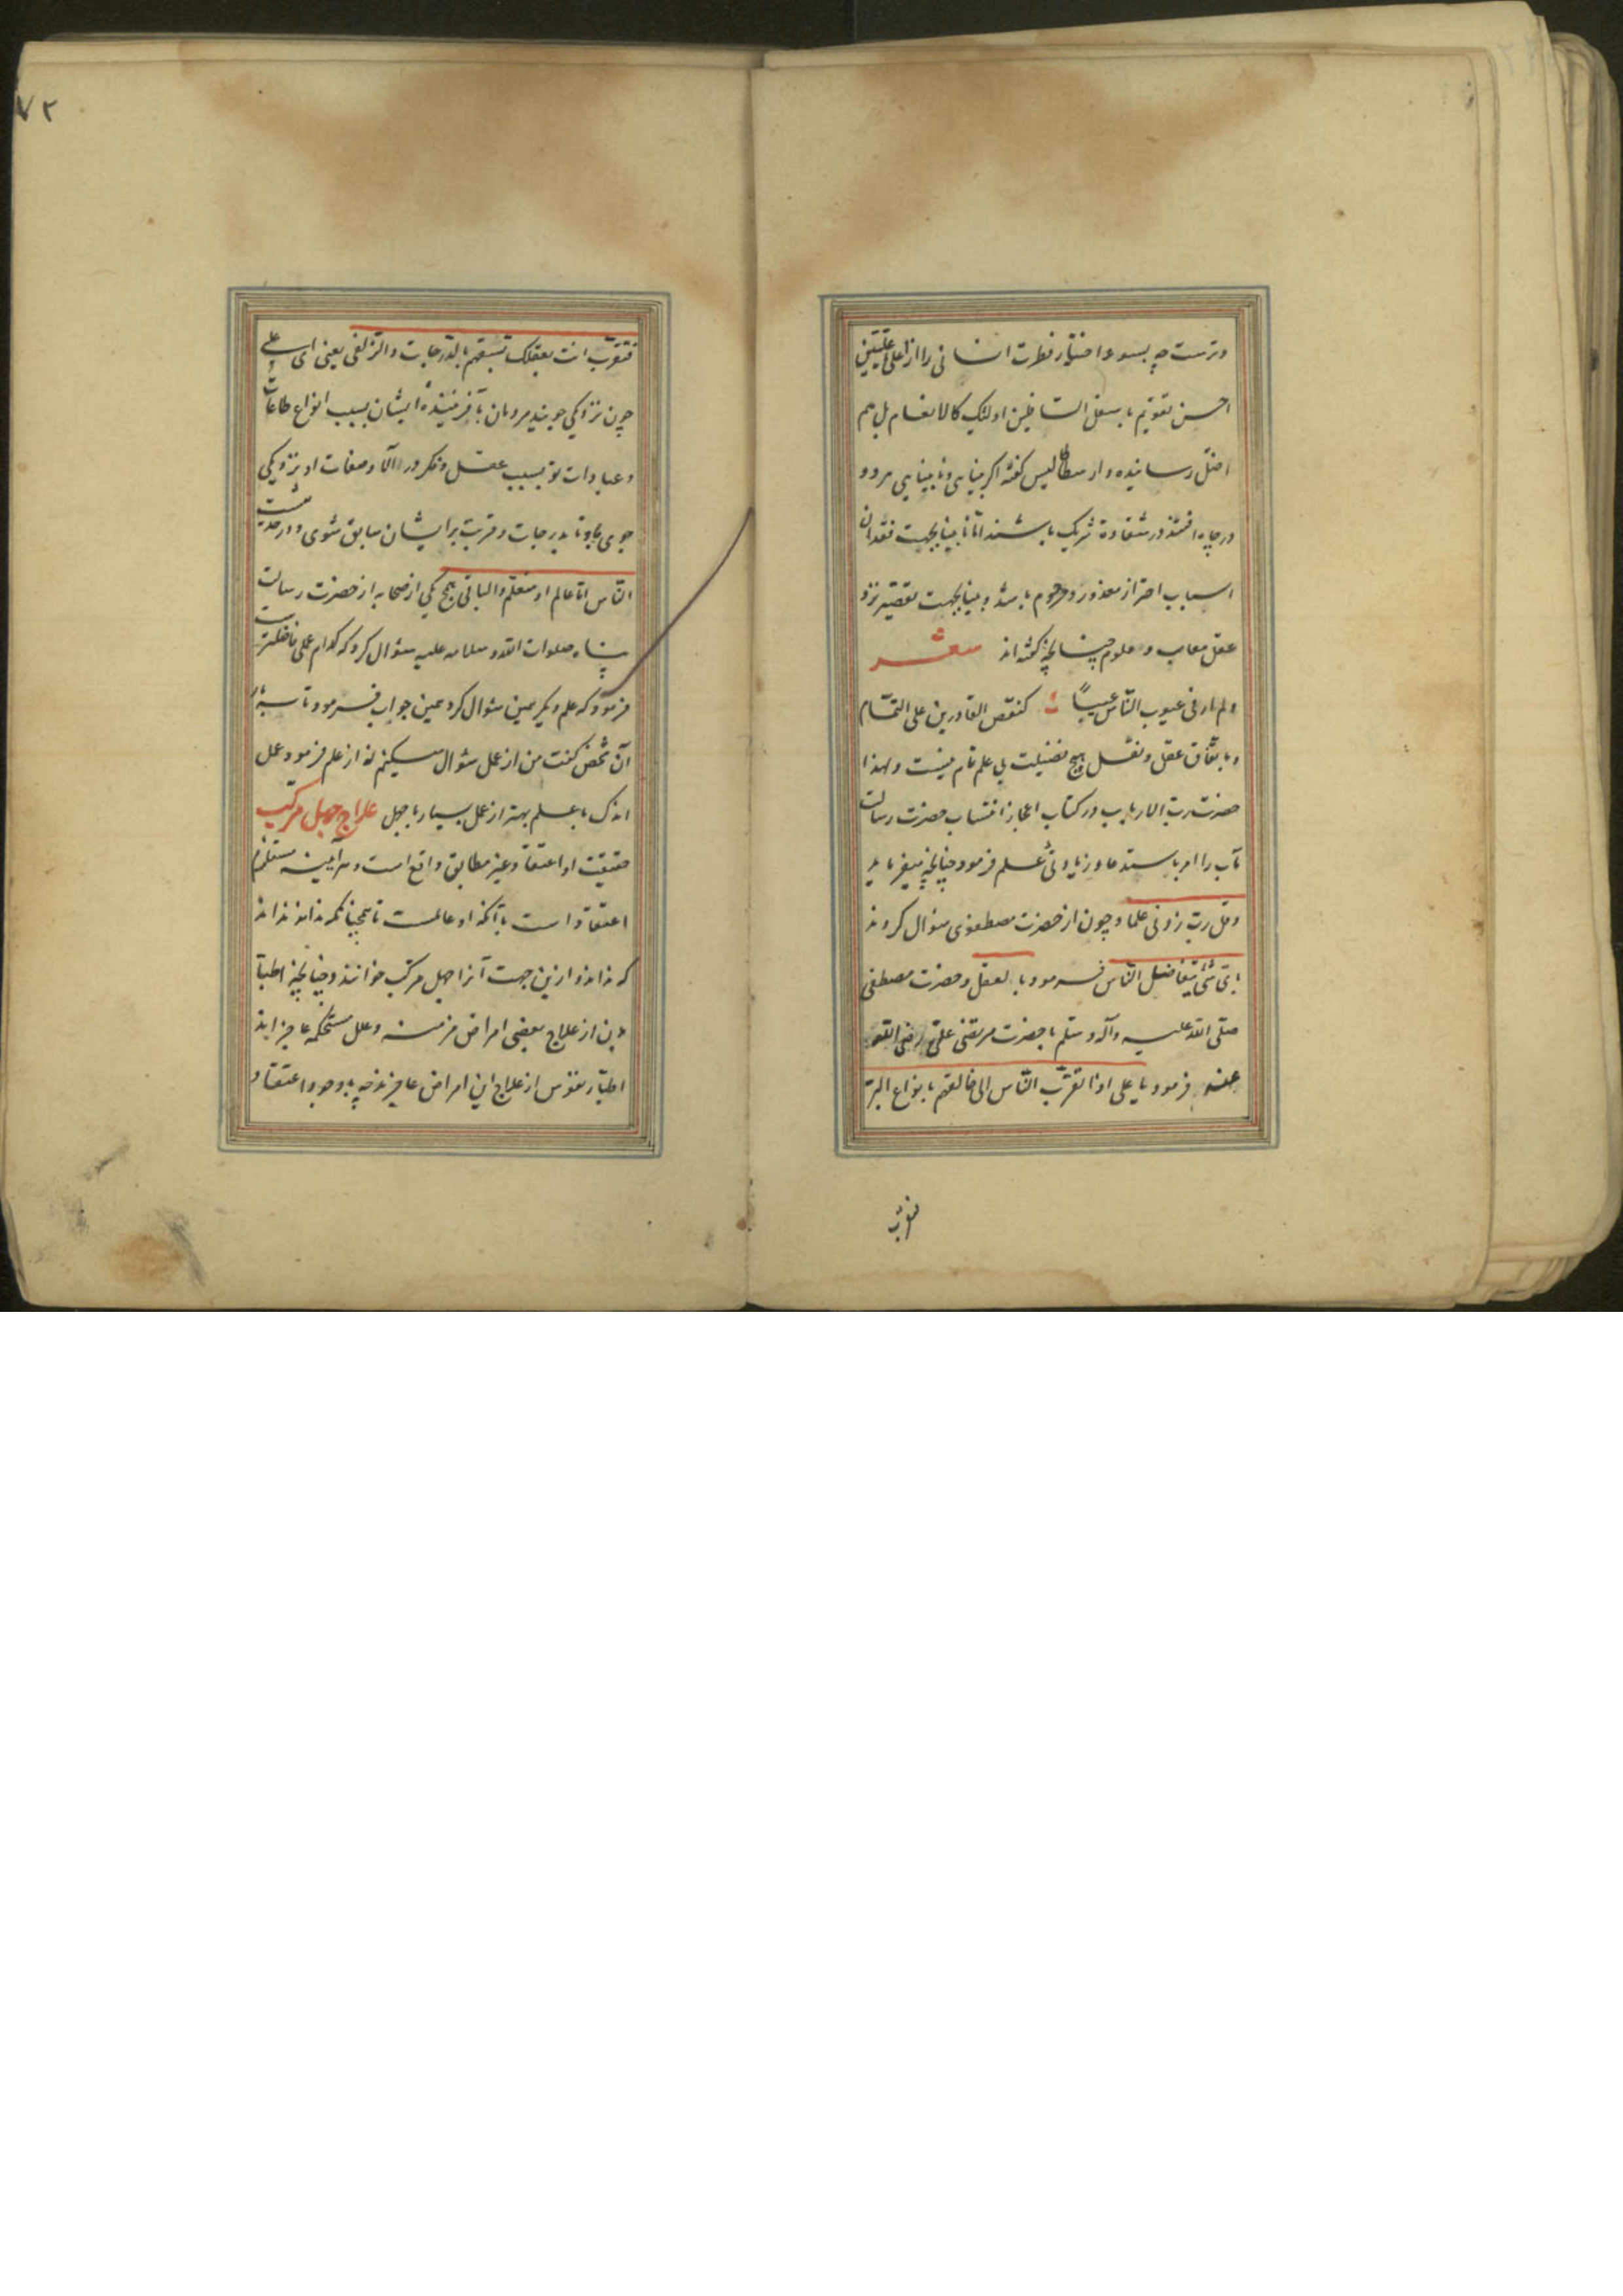 وترست چه بسوء اختیار فطرت انسانی را از اعلی علیین
احسن تقویم باسفل السافلین اولئک کالانعام بل هم
اضل رسانیده و ارسطاطالیس گفته اگر بینایی و نابینایی هر دو
در چاه افتند در شقاوة شریک باشند اما نابینا بجهت فقدان
اسباب احتراز معذور و مرحوم باشد و بینا بجهت تقصیر نزد
عقل معاب و ملوم چنانچه گفته‌اند شعر
ولم ار فی عیوب الناس عیبًا کنقص القادرین علی التمام
و باتفاق عقل و نقل هیچ فضیلت بی علم تمام نیست و لهذا
حضرت رب الارباب در کتاب اعجاز انتساب حضرت رسالت
مآب را امر باستدعاء زیادتی علم فرمود چنانچه میفرماید
وقل رب زدنی علما و چون از حضرت مصطفوی سؤال کردند
بای شیٔ یتفاضل الناس فرمود بالعقل و حضرت مصطفی
صلی الله علیه وآله وسلم با حضرت مرتضی علی رضی الله
عنه فرمود یا علی اذا تقرب الناس الی خالقهم بانواع البر
فتقرب
۷۲
فتقرب انت بعقلک تسبقهم بالدرجات والزلفی یعنی ای علی
چون نزدیکی جویند مردمان بآفریننده ایشان بسبب انواع طاعات
و عبادات تو بسبب عقل و فکر در آلاء و صفات او نزدیکی
جوی بجو تا بدرجات و قربت بر ایشان سابق شوی و در حدیث
الناس اما عالم او متعلم والباقی همج یکی از صحابه از حضرت رسالت
پناه صلوات الله وسلامه علیه سؤال کرد که کدام عمل فاضلترست
فرمود که علم دیگر همین سؤال کرد همین جواب فرمود تا سه بار
آن شخص گفت من از عمل سؤال میکنم نه از علم فرمود عمل
اندک با علم بهتر از عمل بسیار با جهل علاج جهل مرکب
حقیقت او اعتقاد غیر مطابق واقع است و هر آینه مستلزم
اعتقاد است بآنکه او عالمست تا همچنانکه نداند نداند
که نداند و ازین جهت آنرا جهل مرکب خوانند و چنانچه اطباء
بدن از علاج بعضی امراض مزمنه و علل مستحکمه عاجزاند
اطباء نفوس از علاج این امراض عاجزند چه با وجود اعتقاد